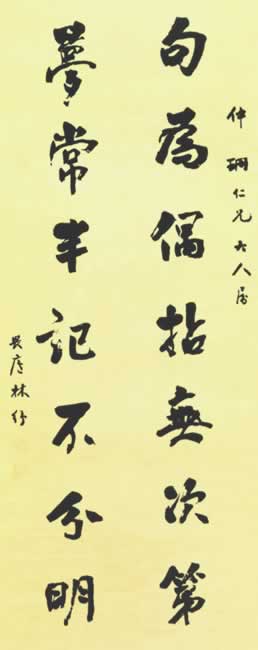 仲仁兄大人屬
句為偶拈無次第
夢常半記不分明
畏廬林紓